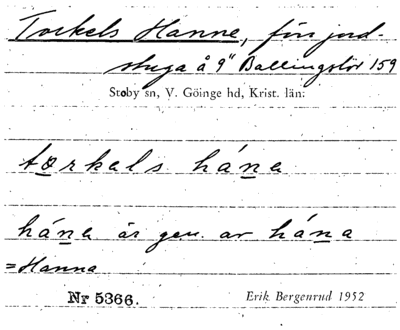 Torkels Hanne, förr jord-
stuga å 9" Ballingslöv 159
Stoby sn, V. Göinge hd, Krist. län:
tørkels háne
háne är gen. av hána
=Hanna
Nr 5366. Erik Bergenrud 1952